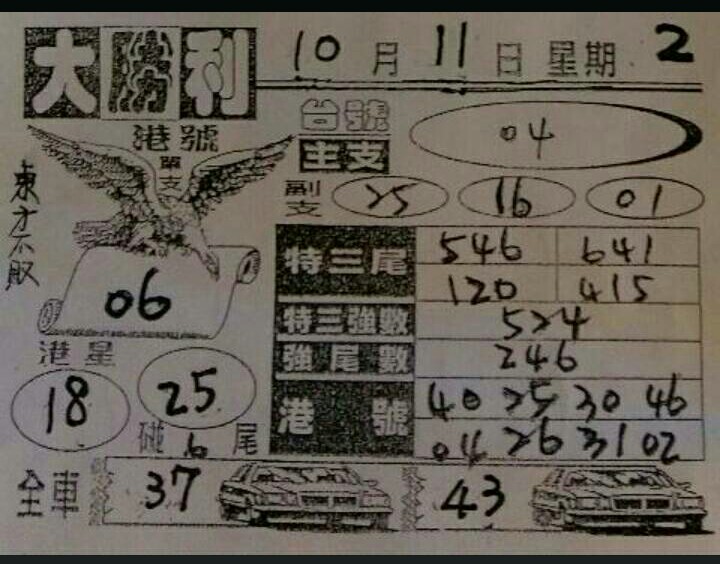 大勝利 10月11日星期2
港號
單支
東方不敗
06
台號
主支
04
副支 25 16 01
特三尾 546 641
120 415
特三強數 524
強尾數 246
港號 40 25 30 46
04 26 31 02
港星
18 25
碰6尾
全車 37 43